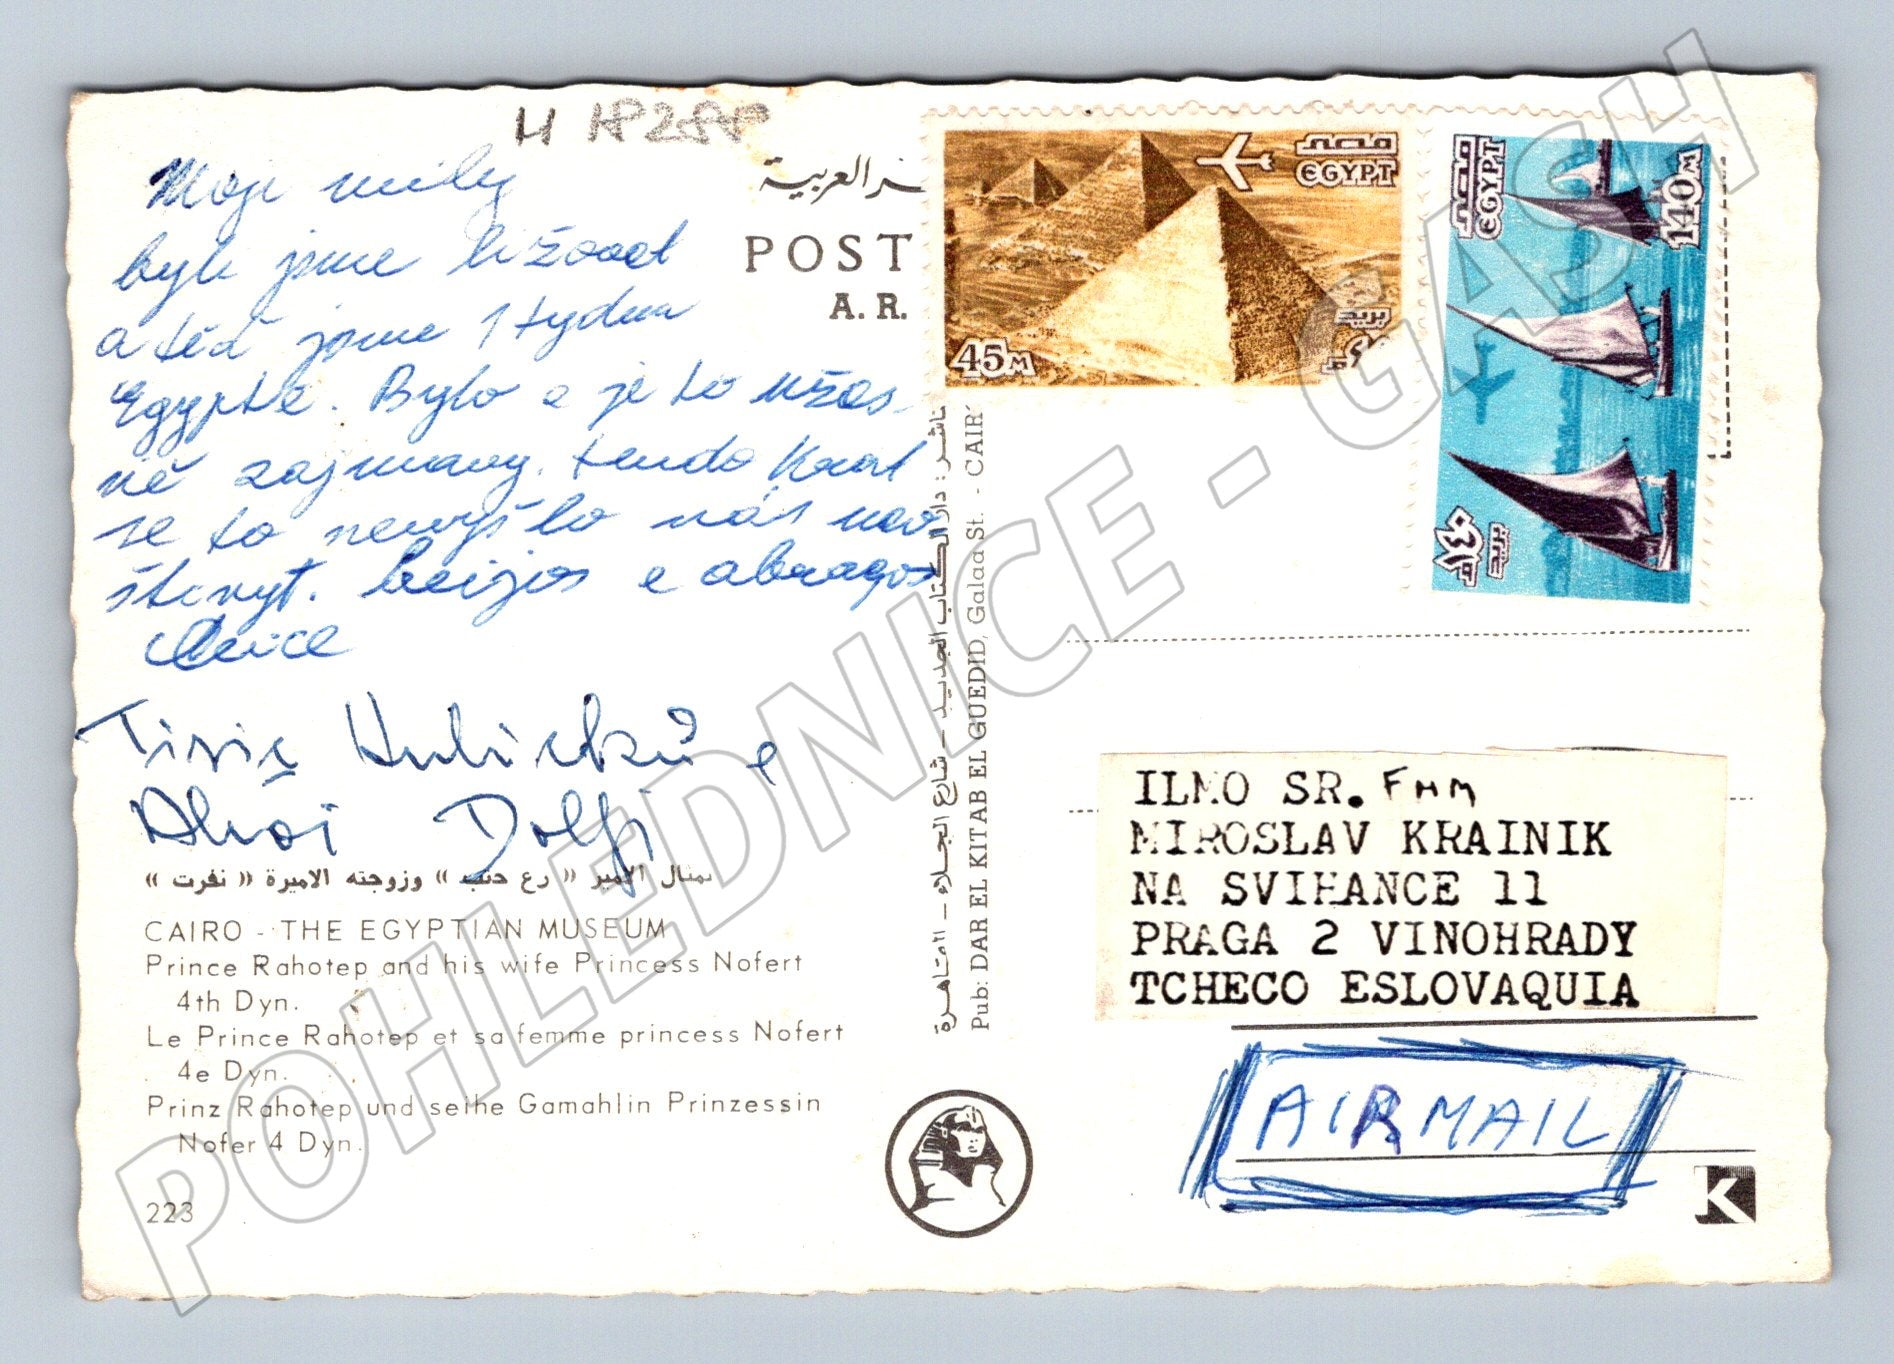 Moji milý
byli jsme ližovat
a teď jsme 1 týden
Egyptě. Bylo e je to užas-
ně zajmavy. tendo krat
se to nevyšlo nás nav
štivyt. beijos e abraços
Tisíc Hubičků e
Ahoi Dolfi
POST
A. R.
مصر
EGYPT
بريد
45 M
مصر
EGYPT
140 M
بريد
١٤٠ م
ناشر : دار الكتاب الجديد – شارع الجلاء – القاهرة
Pub: DAR EL KITAB EL GUEDID, Galaa St. - CAIR
ILMO SR. FHM
MIROSLAV KRAINIK
NA SVIHANCE 11
PRAGA 2 VINOHRADY
TCHECO ESLOVAQUIA
AIR MAIL
تمثال الامير « رع حتب » وزوجته الاميرة « نفرت »
CAIRO - THE EGYPTIAN MUSEUM
Prince Rahotep and his wife Princess Nofert
4th Dyn.
Le Prince Rahotep et sa femme princess Nofert
4e Dyn.
Prinz Rahotep und seihe Gamahlin Prinzessin
Nofer 4 Dyn.
223
K
POHLEDNICE - GASH